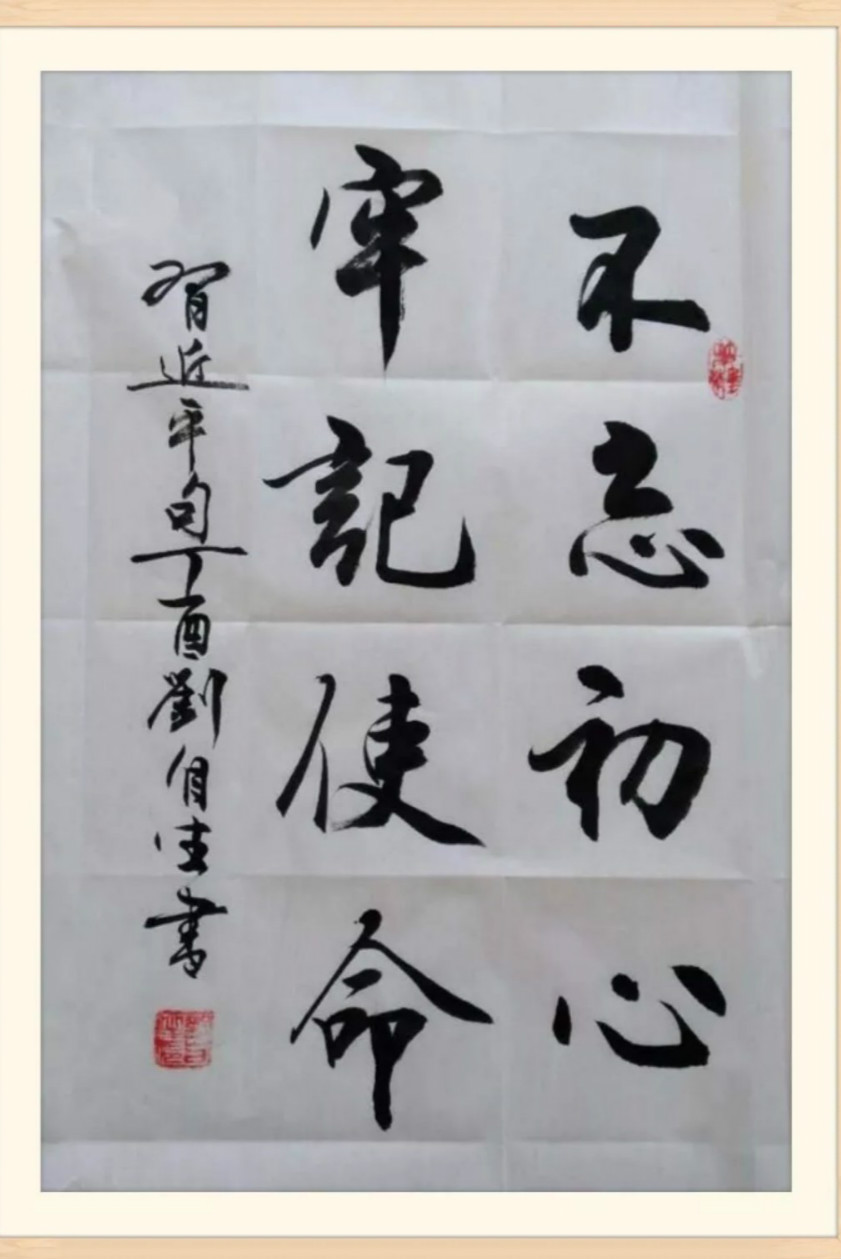 不忘初心
牢記使命
習近平句丁酉劉生書